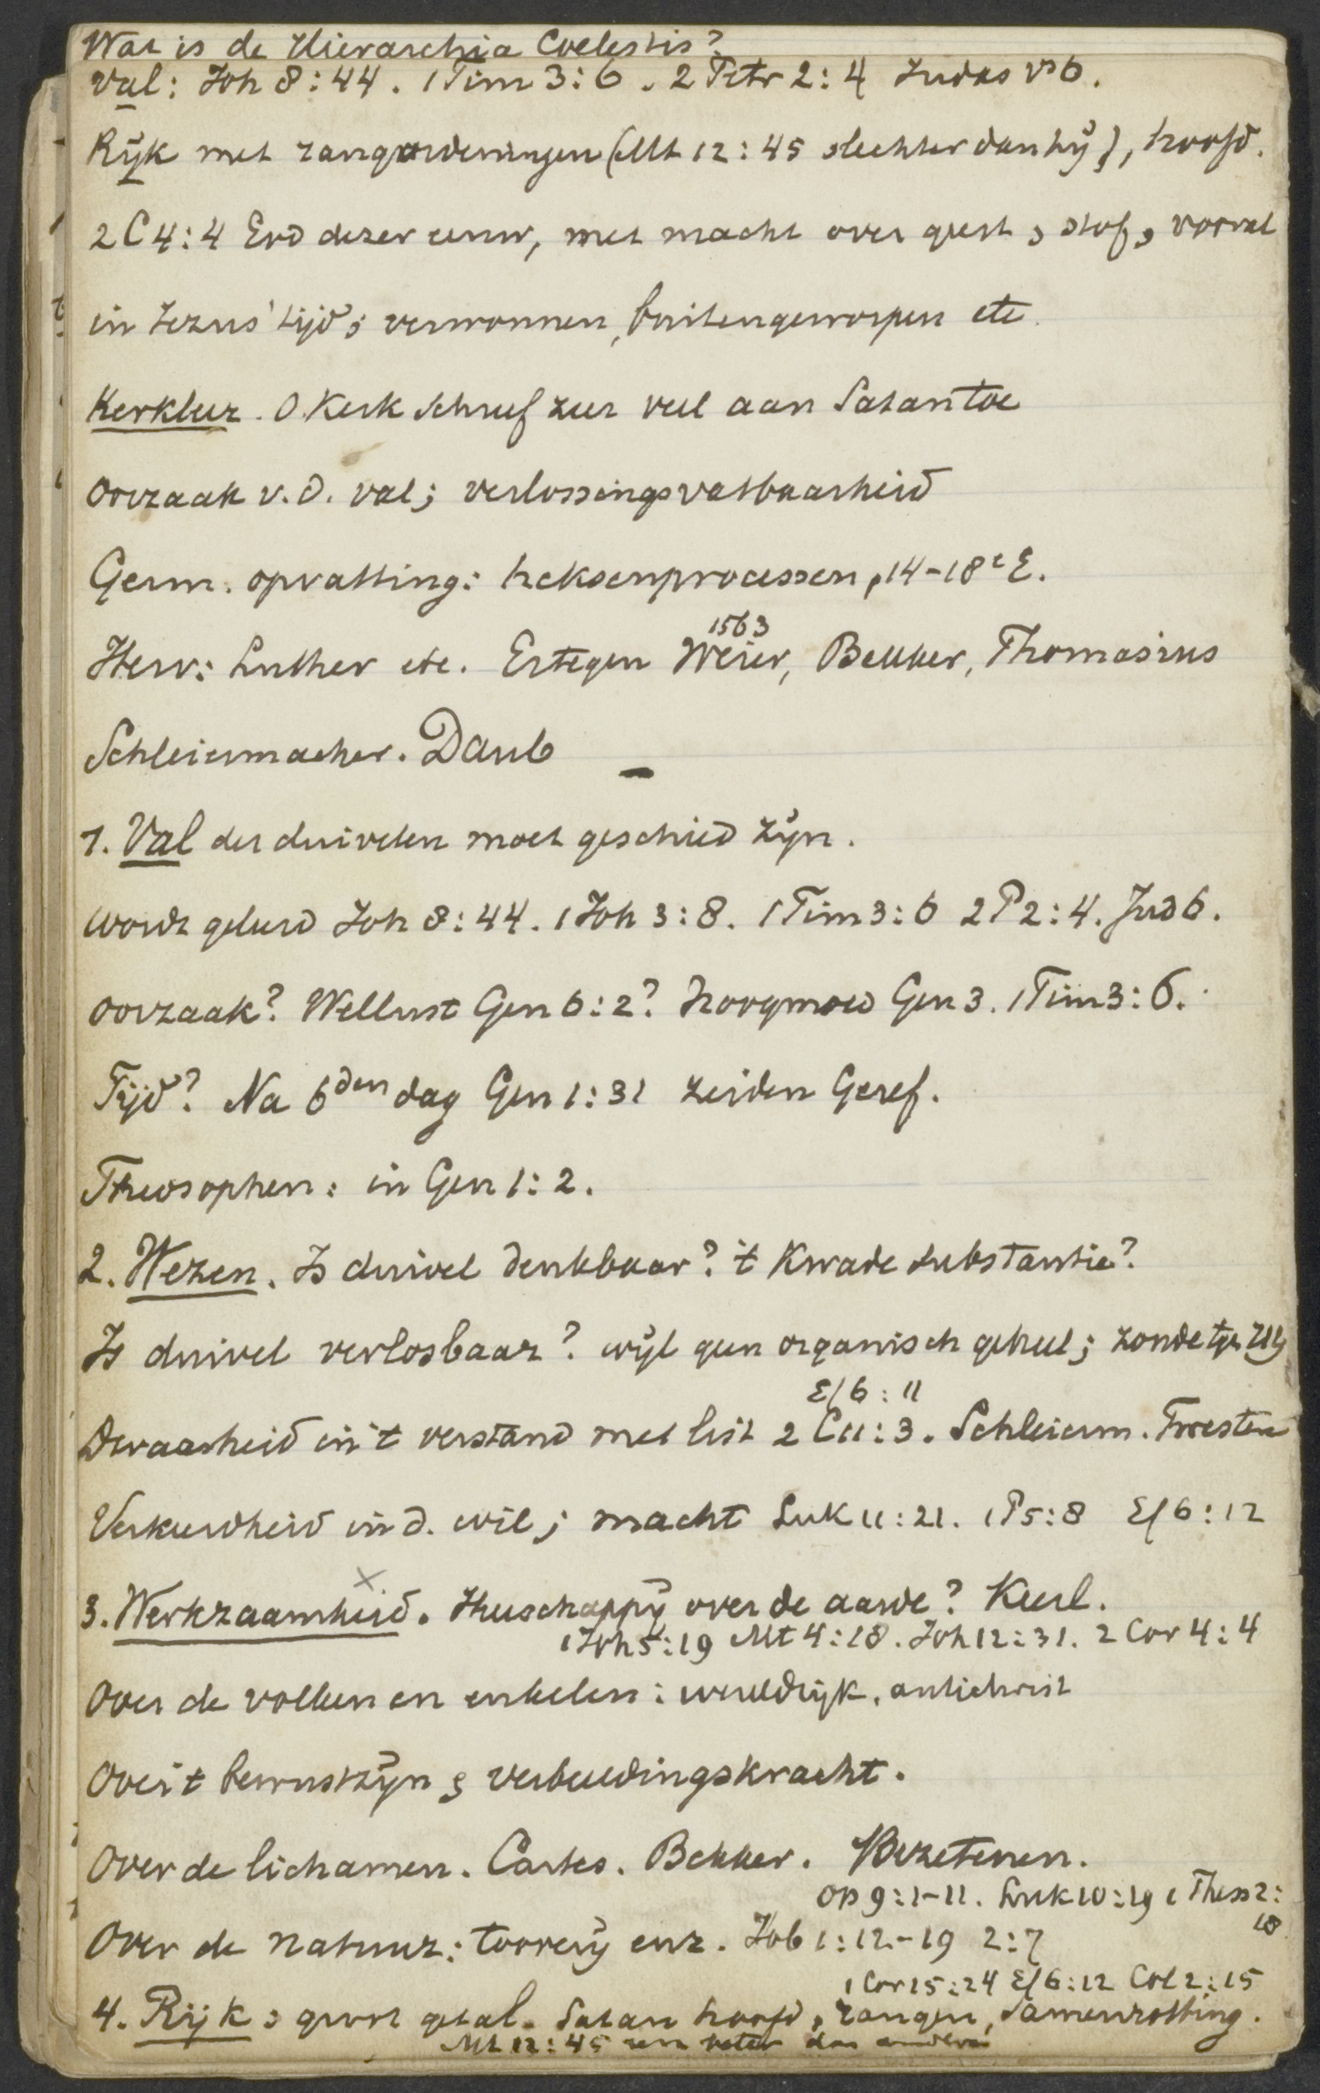 Wat is de Hierarchia Coelestis?
Val: Joh 8:44. 1 Tim 3:6. 2 Petr 2:4 Judas vs 6.
Rijk met rangordeningen (Mt 12:45 slechter dan hij), hoofd.
2 C 4:4 God dezer eeuw, met macht over geest, stof, vooral
in Jezus' tijd; verwonnen, buitengeworpen etc.
Kerkleer. O. Kerk schreef zeer veel aan Satan toe
Oorzaak v.d. val; verlossingsvatbaarheid
Germ. opvatting: heksenprocessen, 14-18e E.
1563
Herv: Luther etc. Ertegen Weier, Bekker, Thomasius
Schleiermacher. Daub
1. Val der duivelen moet geschied zijn.
Wordt geleerd Joh 8:44. 1 Joh 3:8. 1 Tim 3:6 2 P 2:4. Jud 6.
Oorzaak? Wellust Gen 6:2? Hoogmoed Gen 3. 1 Tim 3:6.
Tijd? Na 6den dag Gen 1:31 zeiden Geref.
Theosophen: in Gen 1:2.
2. Wezen. Is duivel denkbaar? 't Kwade substantie?
Is duivel verlosbaar? wijl geen organisch geheel; zonde tgn
Ef 6:11
Dwaasheid in 't verstand met list 2 C 11:3. Schleierm. Twesten
Verkeerdheid in d. wil; macht Luk 11:21. 1 P 5:8 Ef 6:12
3. Werkzaamheid. Heerschappij over de aarde? Keerl.
1 Joh 5:19 Mt 4:18. Joh 12:31. 2 Cor 4:4
Over de volken en enkelen: wereldrijk, antichrist
Over 't bewustzijn & verbeeldingskracht.
Over de lichamen. Cartes. Bekker. Bezetenen.
Op 9:1-11. Luk 10:19 1 Thess 2:18
Over de natuur: tooverij enz. Job 1:12-19 2:7
1 Cor 15:24 Ef 6:12 Col 2:15
4. Rijk: groot getal. Satan hoofd, rangen, samenrotting.
Mt 12:45 een beter dan andere